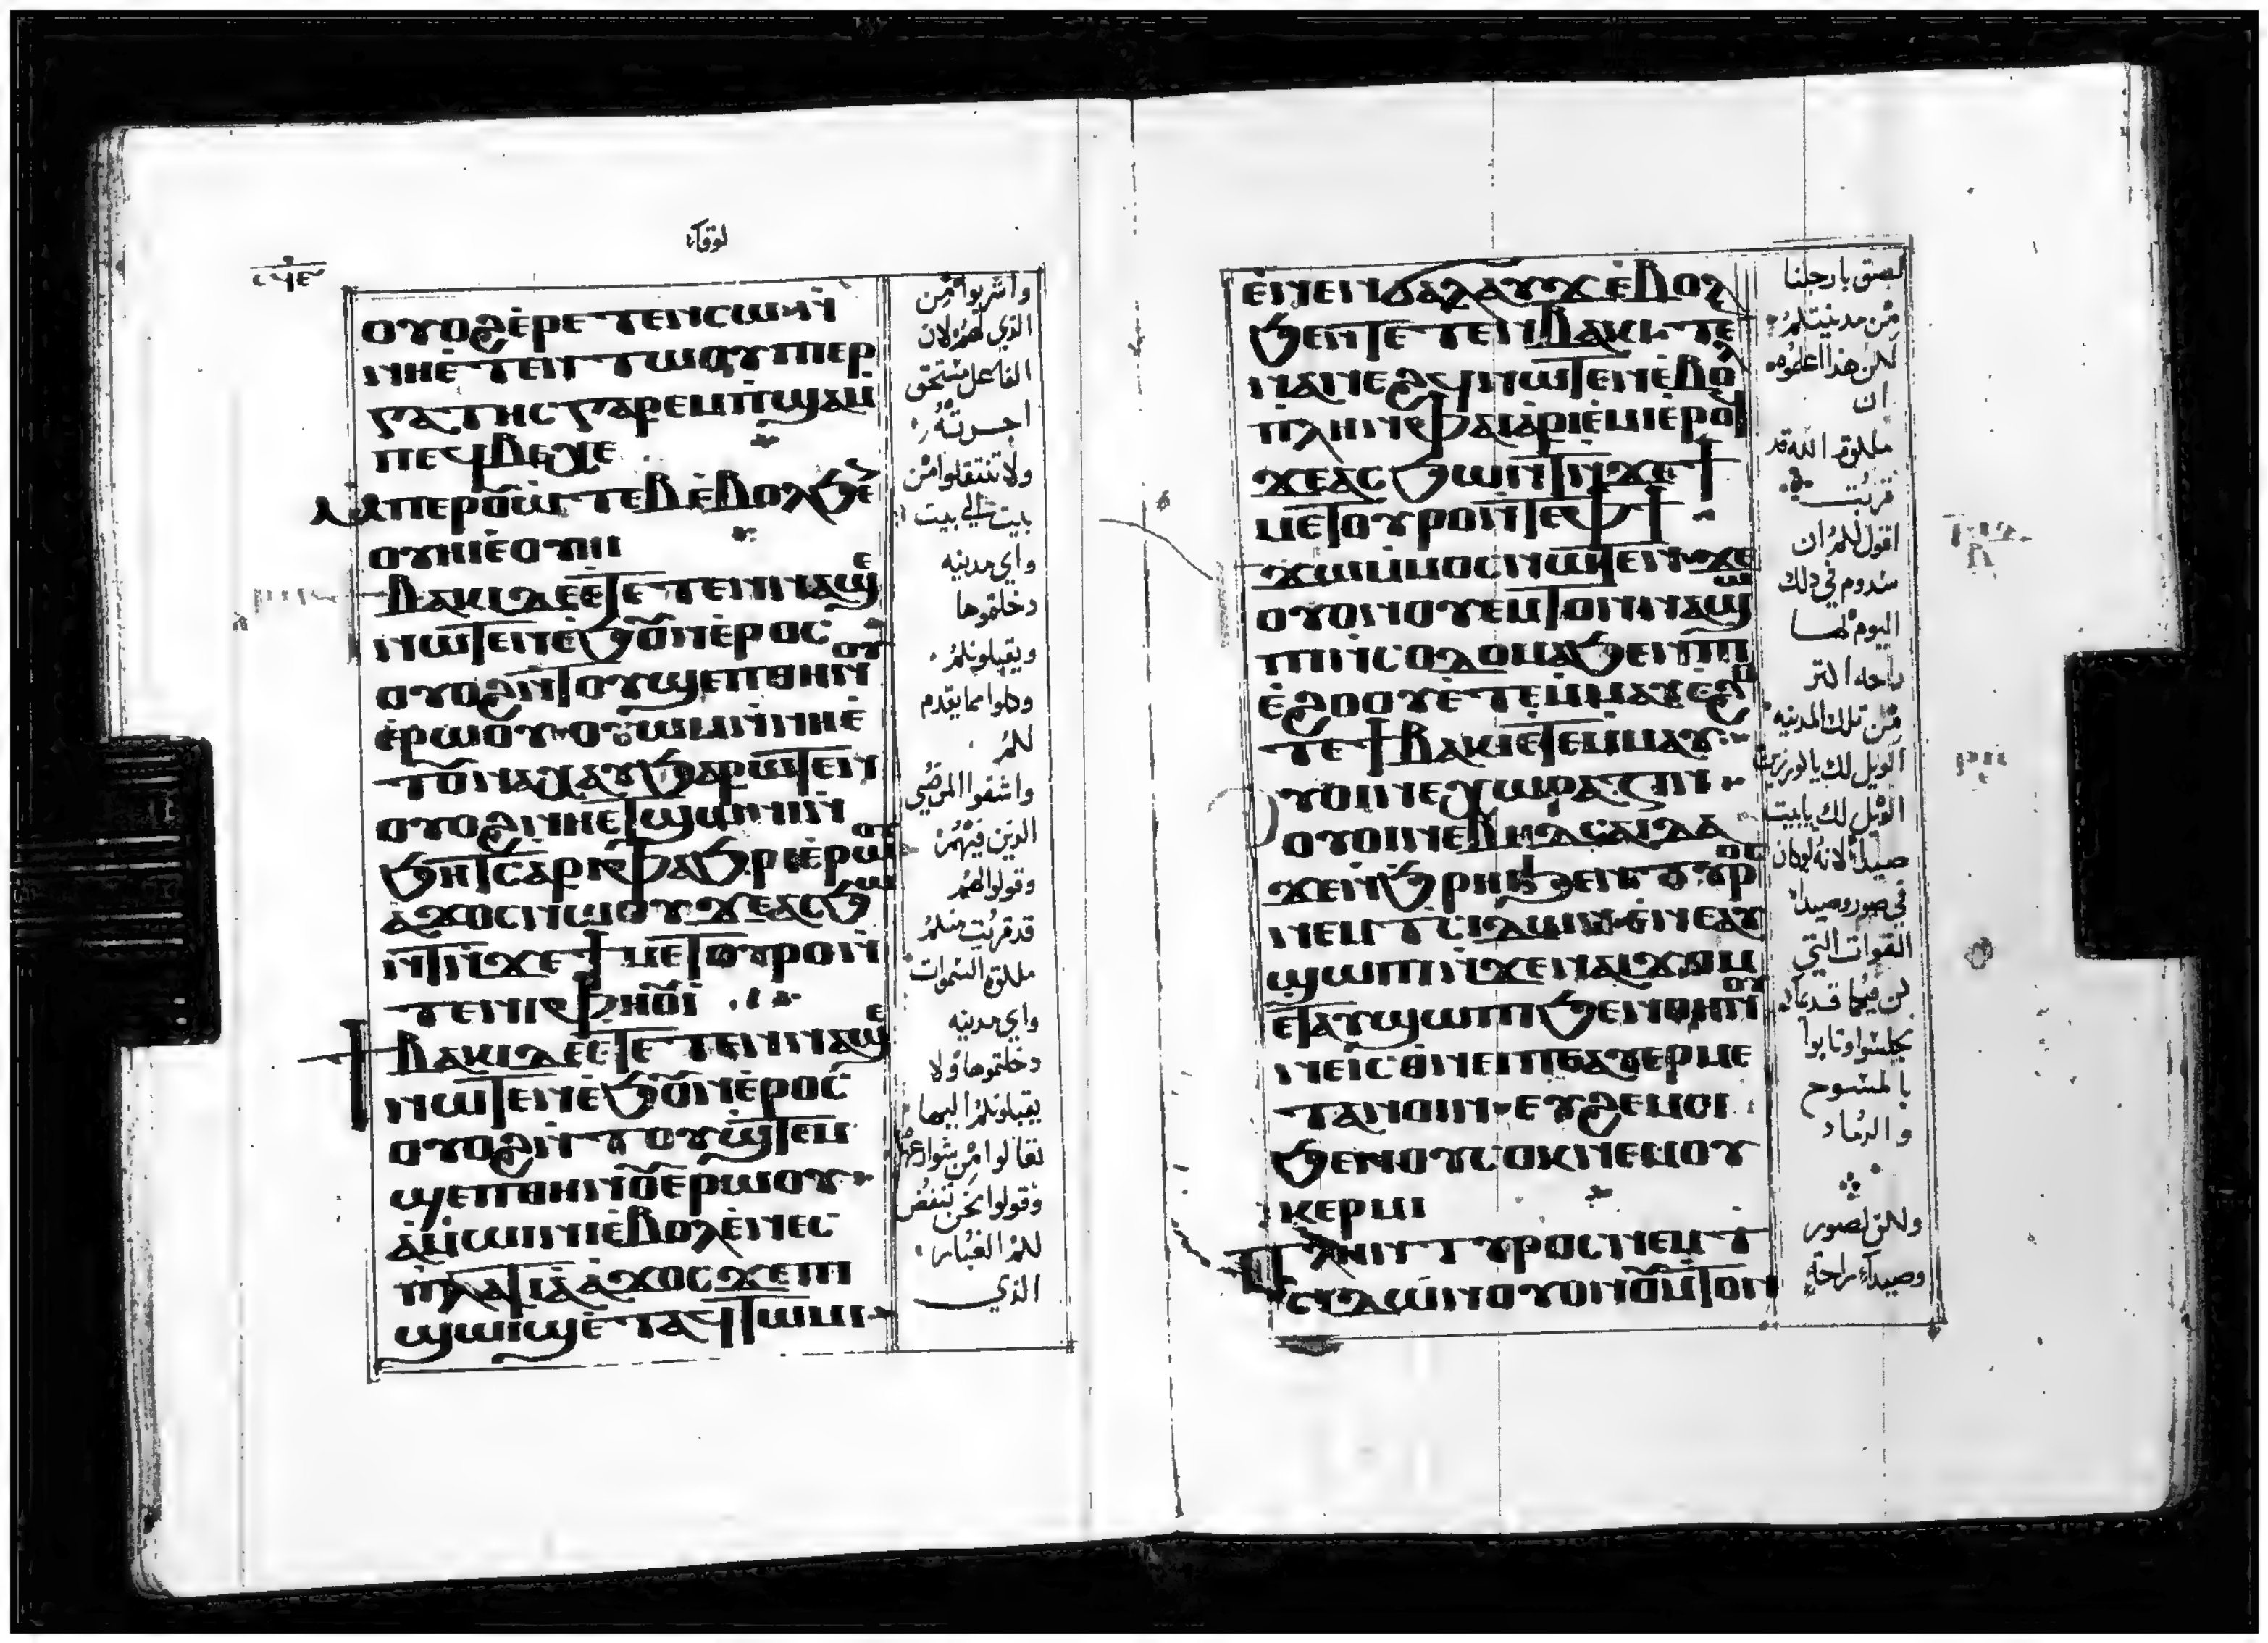 لوقا
ⲟⲩⲟϩ ⲉⲣⲉⲧⲉⲛⲥⲱ ⲛⲛⲓ
ⲛⲏ ⲉⲧⲉⲛⲧⲱⲟⲩ ⲡⲓⲉⲣ
ⲅⲁⲧⲏⲥ ⲅⲁⲣ ⲉⲙⲡϣⲁ ⲙ
ⲡⲉϥⲃⲉⲭⲉ
ⲙⲡⲉⲣⲟⲩⲱⲧⲉⲃ ⲉⲃⲟⲗ ϧⲉⲛ
ⲟⲩⲏⲓ ⲉⲟⲩⲏⲓ
ϯⲃⲁⲕⲓ ⲇⲉ ⲉⲧⲉⲧⲉⲛⲛⲁϣⲉ
ⲛⲱⲧⲉⲛ ⲉϧⲟⲩⲛ ⲉⲣⲟⲥ
ⲟⲩⲟϩ ⲛⲧⲟⲩϣⲉⲡ ⲑⲏⲛⲟⲩ
ⲉⲣⲱⲟⲩ ⲟⲩⲱⲙ ⲛⲛⲏ ⲉ
ⲧⲟⲩⲛⲁⲭⲁⲩ ϧⲁⲣⲱⲧⲉⲛ
ⲟⲩⲟϩ ⲛⲏ ⲉⲧϣⲱⲛⲓ ⲛ
ϧⲏⲧⲥ ⲁⲣⲓⲫⲁϧⲣⲓ ⲉⲣⲱⲟⲩ
ⲁϫⲟⲥ ⲛⲱⲟⲩ ϫⲉ ⲁⲥϧⲱ
ⲛⲧ ⲛϫⲉ ϯⲙⲉⲧⲟⲩⲣⲟ ⲛ
ⲧⲉ ⲛⲓⲫⲏⲟⲩⲓ
ϯⲃⲁⲕⲓ ⲇⲉ ⲉⲧⲉⲧⲉⲛⲛⲁϣⲉ
ⲛⲱⲧⲉⲛ ⲉϧⲟⲩⲛ ⲉⲣⲟⲥ
ⲟⲩⲟϩ ⲛⲧⲟⲩϣⲧⲉⲙ
ϣⲉⲡ ⲑⲏⲛⲟⲩ ⲉⲣⲱⲟⲩ
ⲁⲙⲱⲓⲛⲓ ⲉⲃⲟⲗ ⲉⲛⲉⲥ
ⲡⲗⲁⲧⲓⲁ ⲁϫⲟⲥ ϫⲉ ⲡⲓ
ϣⲱⲓϣ ⲉⲧⲁϥⲧⲱⲙⲓ
واشربوا من
الذي لهم لان
الفاعل مستحق
اجرته
ولا تنتقلوا من
بيت الى بيت
واي مدينه
دخلتموها
ويقبلونكم
وكلوا مما يقدم
لكم
واشفوا المرضي
الذين فيهم
وقولوا لهم
قد قربت منكم
ملكوة السموات
واي مدينه
دخلتموها ولا
يقبلونكم اليها
تعالوا من شوارعها
وقولوا نحن ننفض
لكم الغبار
الذي
ⲉⲛⲉⲛϭⲁⲗⲁⲩϫ ⲉⲃⲟⲗ
ϧⲉⲛ ⲧⲉⲧⲉⲛⲃⲁⲕⲓ ⲧⲉⲛ
ⲛⲁⲛⲉϩϥ ⲛⲱⲧⲉⲛ ⲉⲃⲟⲗ
ⲡⲗⲏⲛ ⲫⲁⲓ ⲁⲣⲓⲉⲙⲓ ⲉⲣⲟϥ
ϫⲉ ⲁⲥϧⲱⲛⲧ ⲛϫⲉ ϯ
ⲙⲉⲧⲟⲩⲣⲟ ⲛⲧⲉ ⲫϯ
ϯϫⲱ ⲙⲙⲟⲥ ⲛⲱⲧⲉⲛ ϫⲉ
ⲟⲩⲟⲛ ⲟⲩⲉⲙⲧⲟⲛ ⲛⲁϣⲱ
ⲡⲓ ⲛⲥⲟⲇⲟⲙⲁ ϧⲉⲛ ⲡⲓ
ⲉϩⲟⲟⲩ ⲉⲧⲉⲙⲙⲁⲩ ⲉϩⲟ
ⲧⲉ ϯⲃⲁⲕⲓ ⲉⲧⲉⲙⲙⲁⲩ
ⲟⲩⲟⲓ ⲛⲉ ⲭⲱⲣⲁⲍⲓⲛ
ⲟⲩⲟⲓ ⲛⲉ ⲃⲏⲇⲥⲁⲓⲇⲁ
ϫⲉ ⲛϧⲣⲏⲓ ϧⲉⲛ ⲧⲩⲣⲟⲥ
ⲛⲉⲙ ⲧⲥⲓⲇⲱⲛ ⲉⲛⲉ ⲁⲩ
ϣⲱⲡⲓ ⲛϫⲉ ⲛⲁⲓϫⲟⲙ
ⲉⲧⲁⲩϣⲱⲡⲓ ϧⲉⲛ ⲑⲏⲛⲟⲩ
ⲛⲉ ⲓⲥϫⲉⲛ ⲡⲉ ⲁⲩⲉⲣⲙⲉ
ⲧⲁⲛⲟⲓⲛ ⲉⲩϩⲉⲙⲥⲓ
ϧⲉⲛ ⲟⲩⲥⲟⲕ ⲛⲉⲙ ⲟⲩ
ⲕⲉⲣⲙⲓ
ⲡⲗⲏⲛ ⲧⲩⲣⲟⲥ ⲛⲉⲙ ⲧ
ⲥⲓⲇⲱⲛ ⲟⲩⲟⲛ ⲟⲩⲙⲧⲟⲛ
لصق بارجلنا
من مدينتكم
لكن هذا اعلموه
ان
ملكوة الله قد
قربت
اقول لكم ان
سدوم في ذلك
اليوم لها
راحه اكتر
من تلك المدينه
الويل لك يا كورزين
الويل لك يا بيت
صيدا لانه لو كان
في صور وصيدا
القوات التي
كن فيكما قديما
يجلسوا وتابوا
بالمسوح
والرماد
ولكن لصور
وصيداء راحة